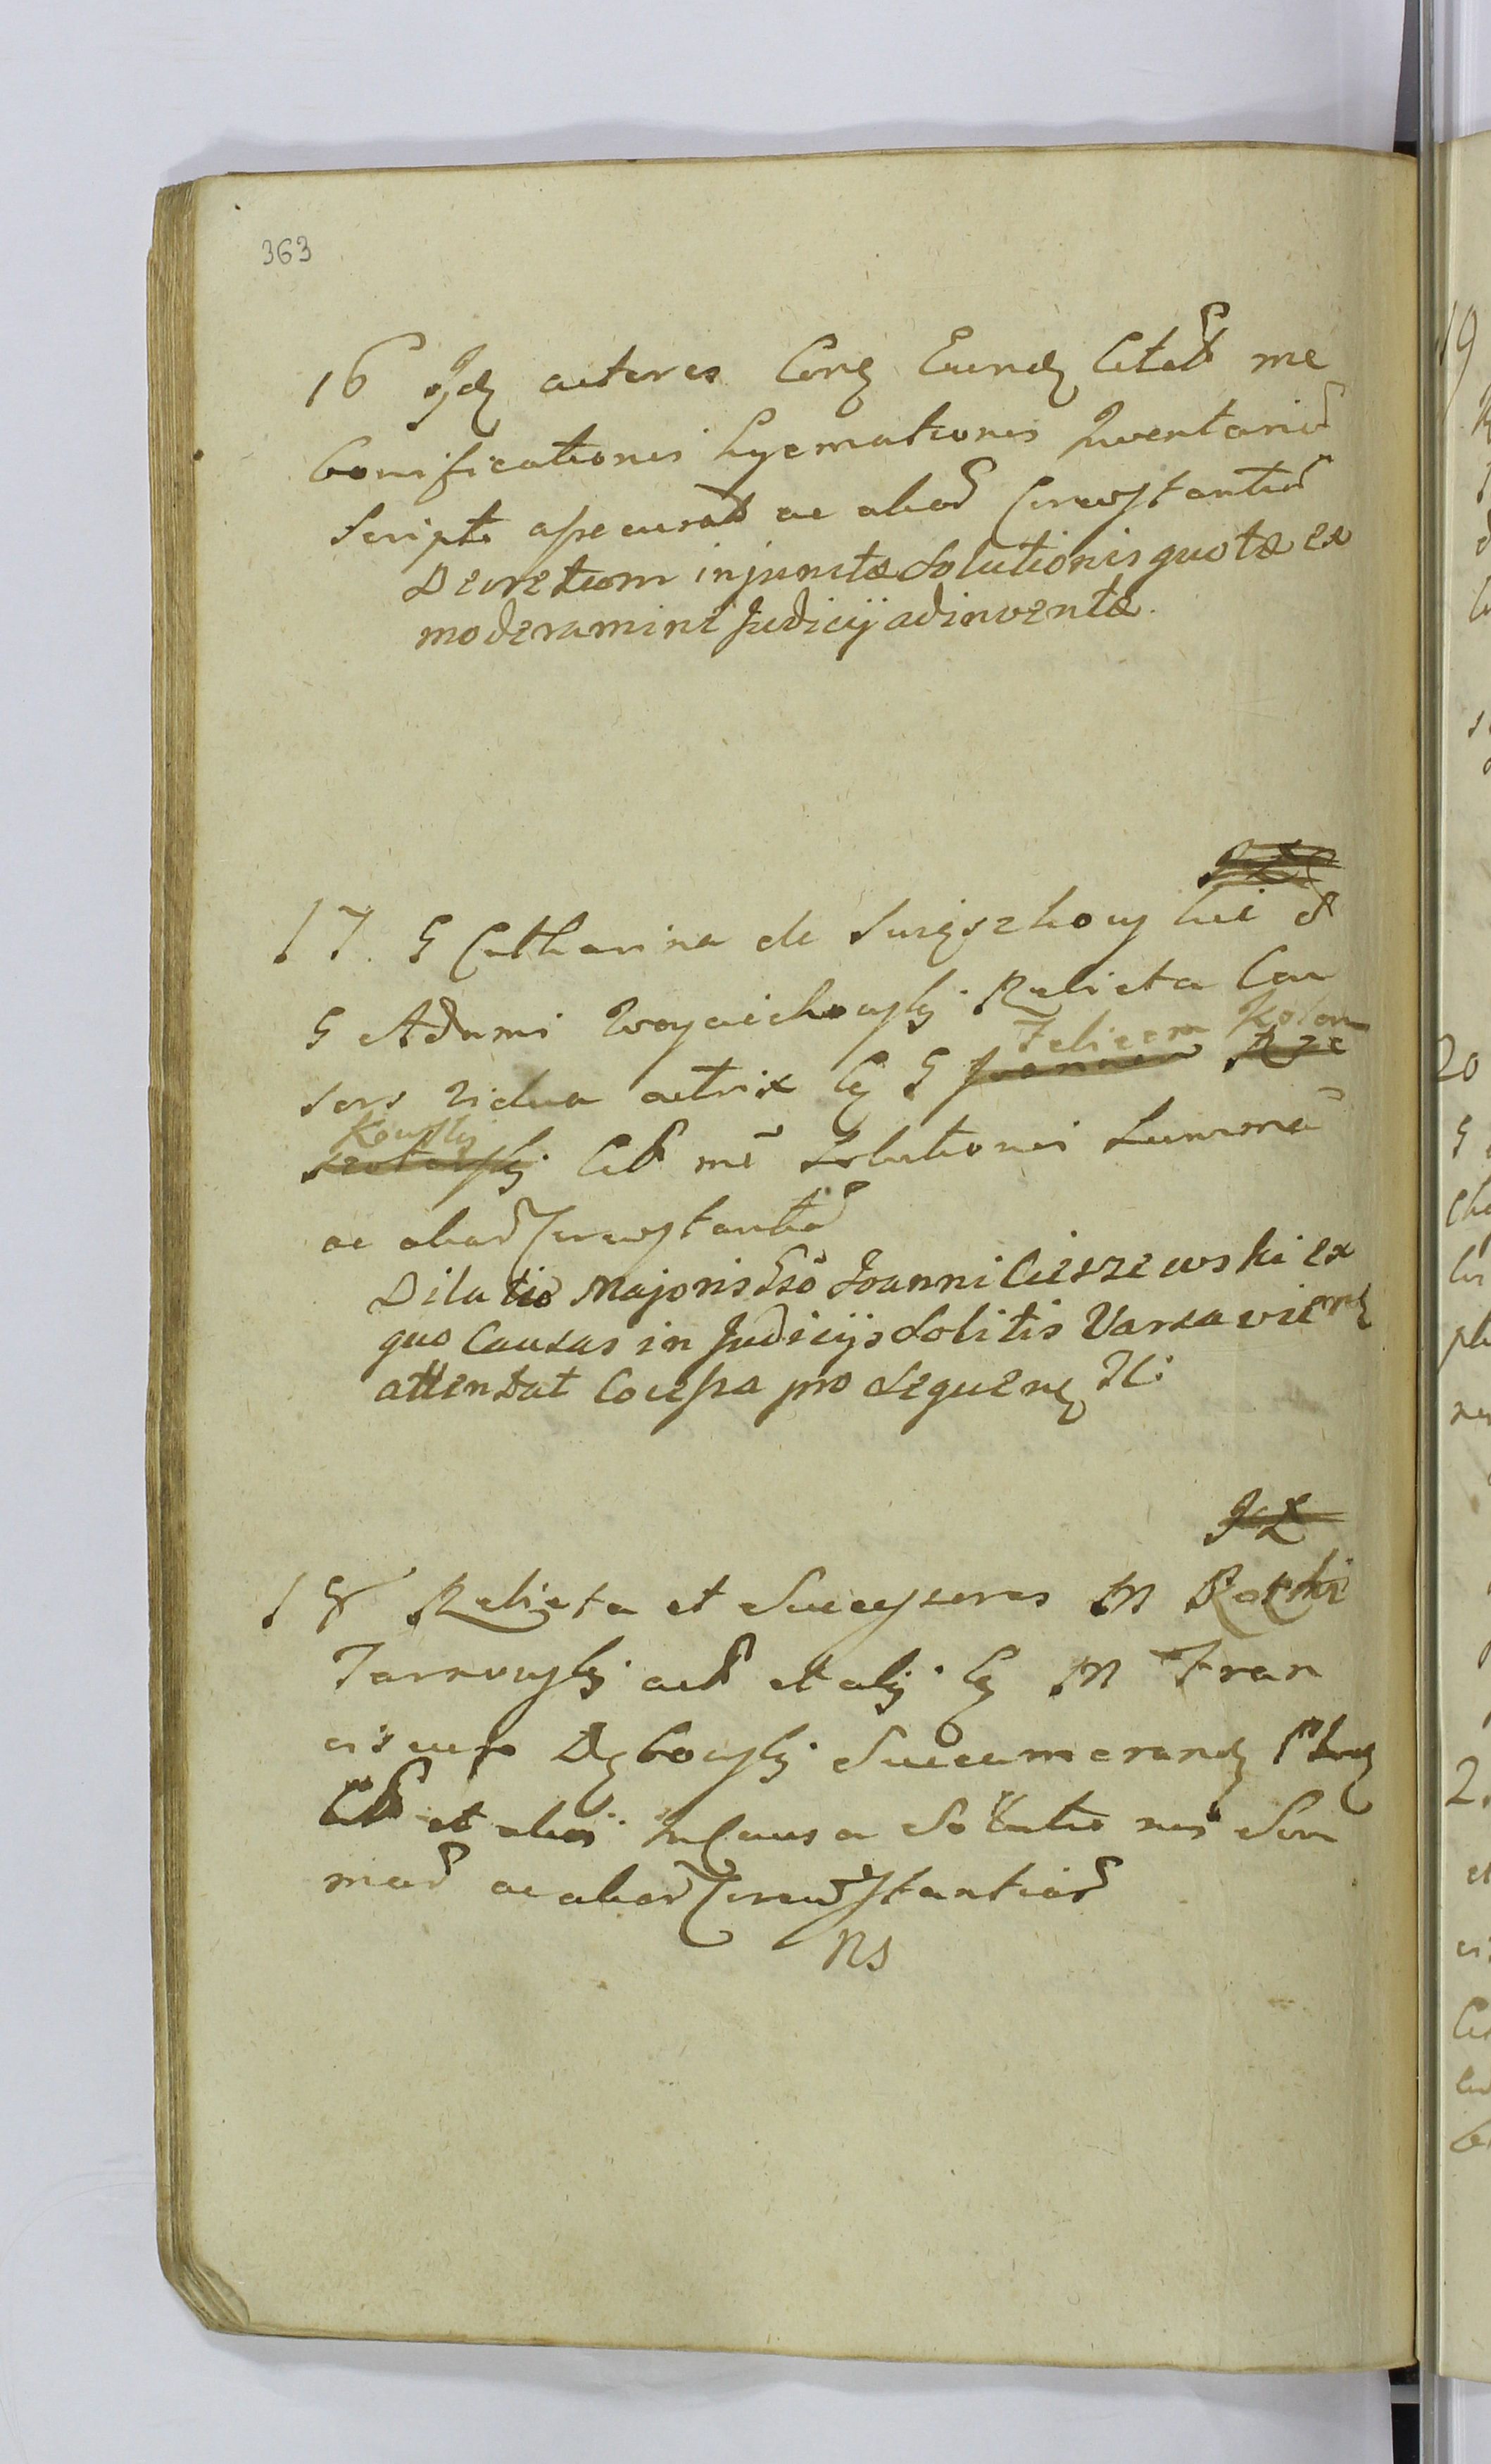 363
16 actores Cong Eund Citat me
bonificationis hyemationis Inventarior
Scripto assecurat ac aliar Circumstantiar
Decretum injunctæ Solutionis quotæ ex
moderamine Judicij adinventæ.
17. G Catharina de
G Adami Woyciechowskj Relicta Con
sors vidua actrix Cg G Joannem Rze
Felicem Kolan
Kowskj
Cit me Solutionis Summa
ac aliar Circumstantiar
Dilatio Majoris Gso Joanni Cieszewski ex
quo Causas in Judicijs Solitis Varsavien
attentat Coießa pro Sequen
18 Relicta et Successores M
Tarnowskj act et alij Cg M Fran
ciscum Dębowskj Succamerand
Cit et alios in Causa Solutio nis Sum
mar ac aliar Circumstantiar
NS